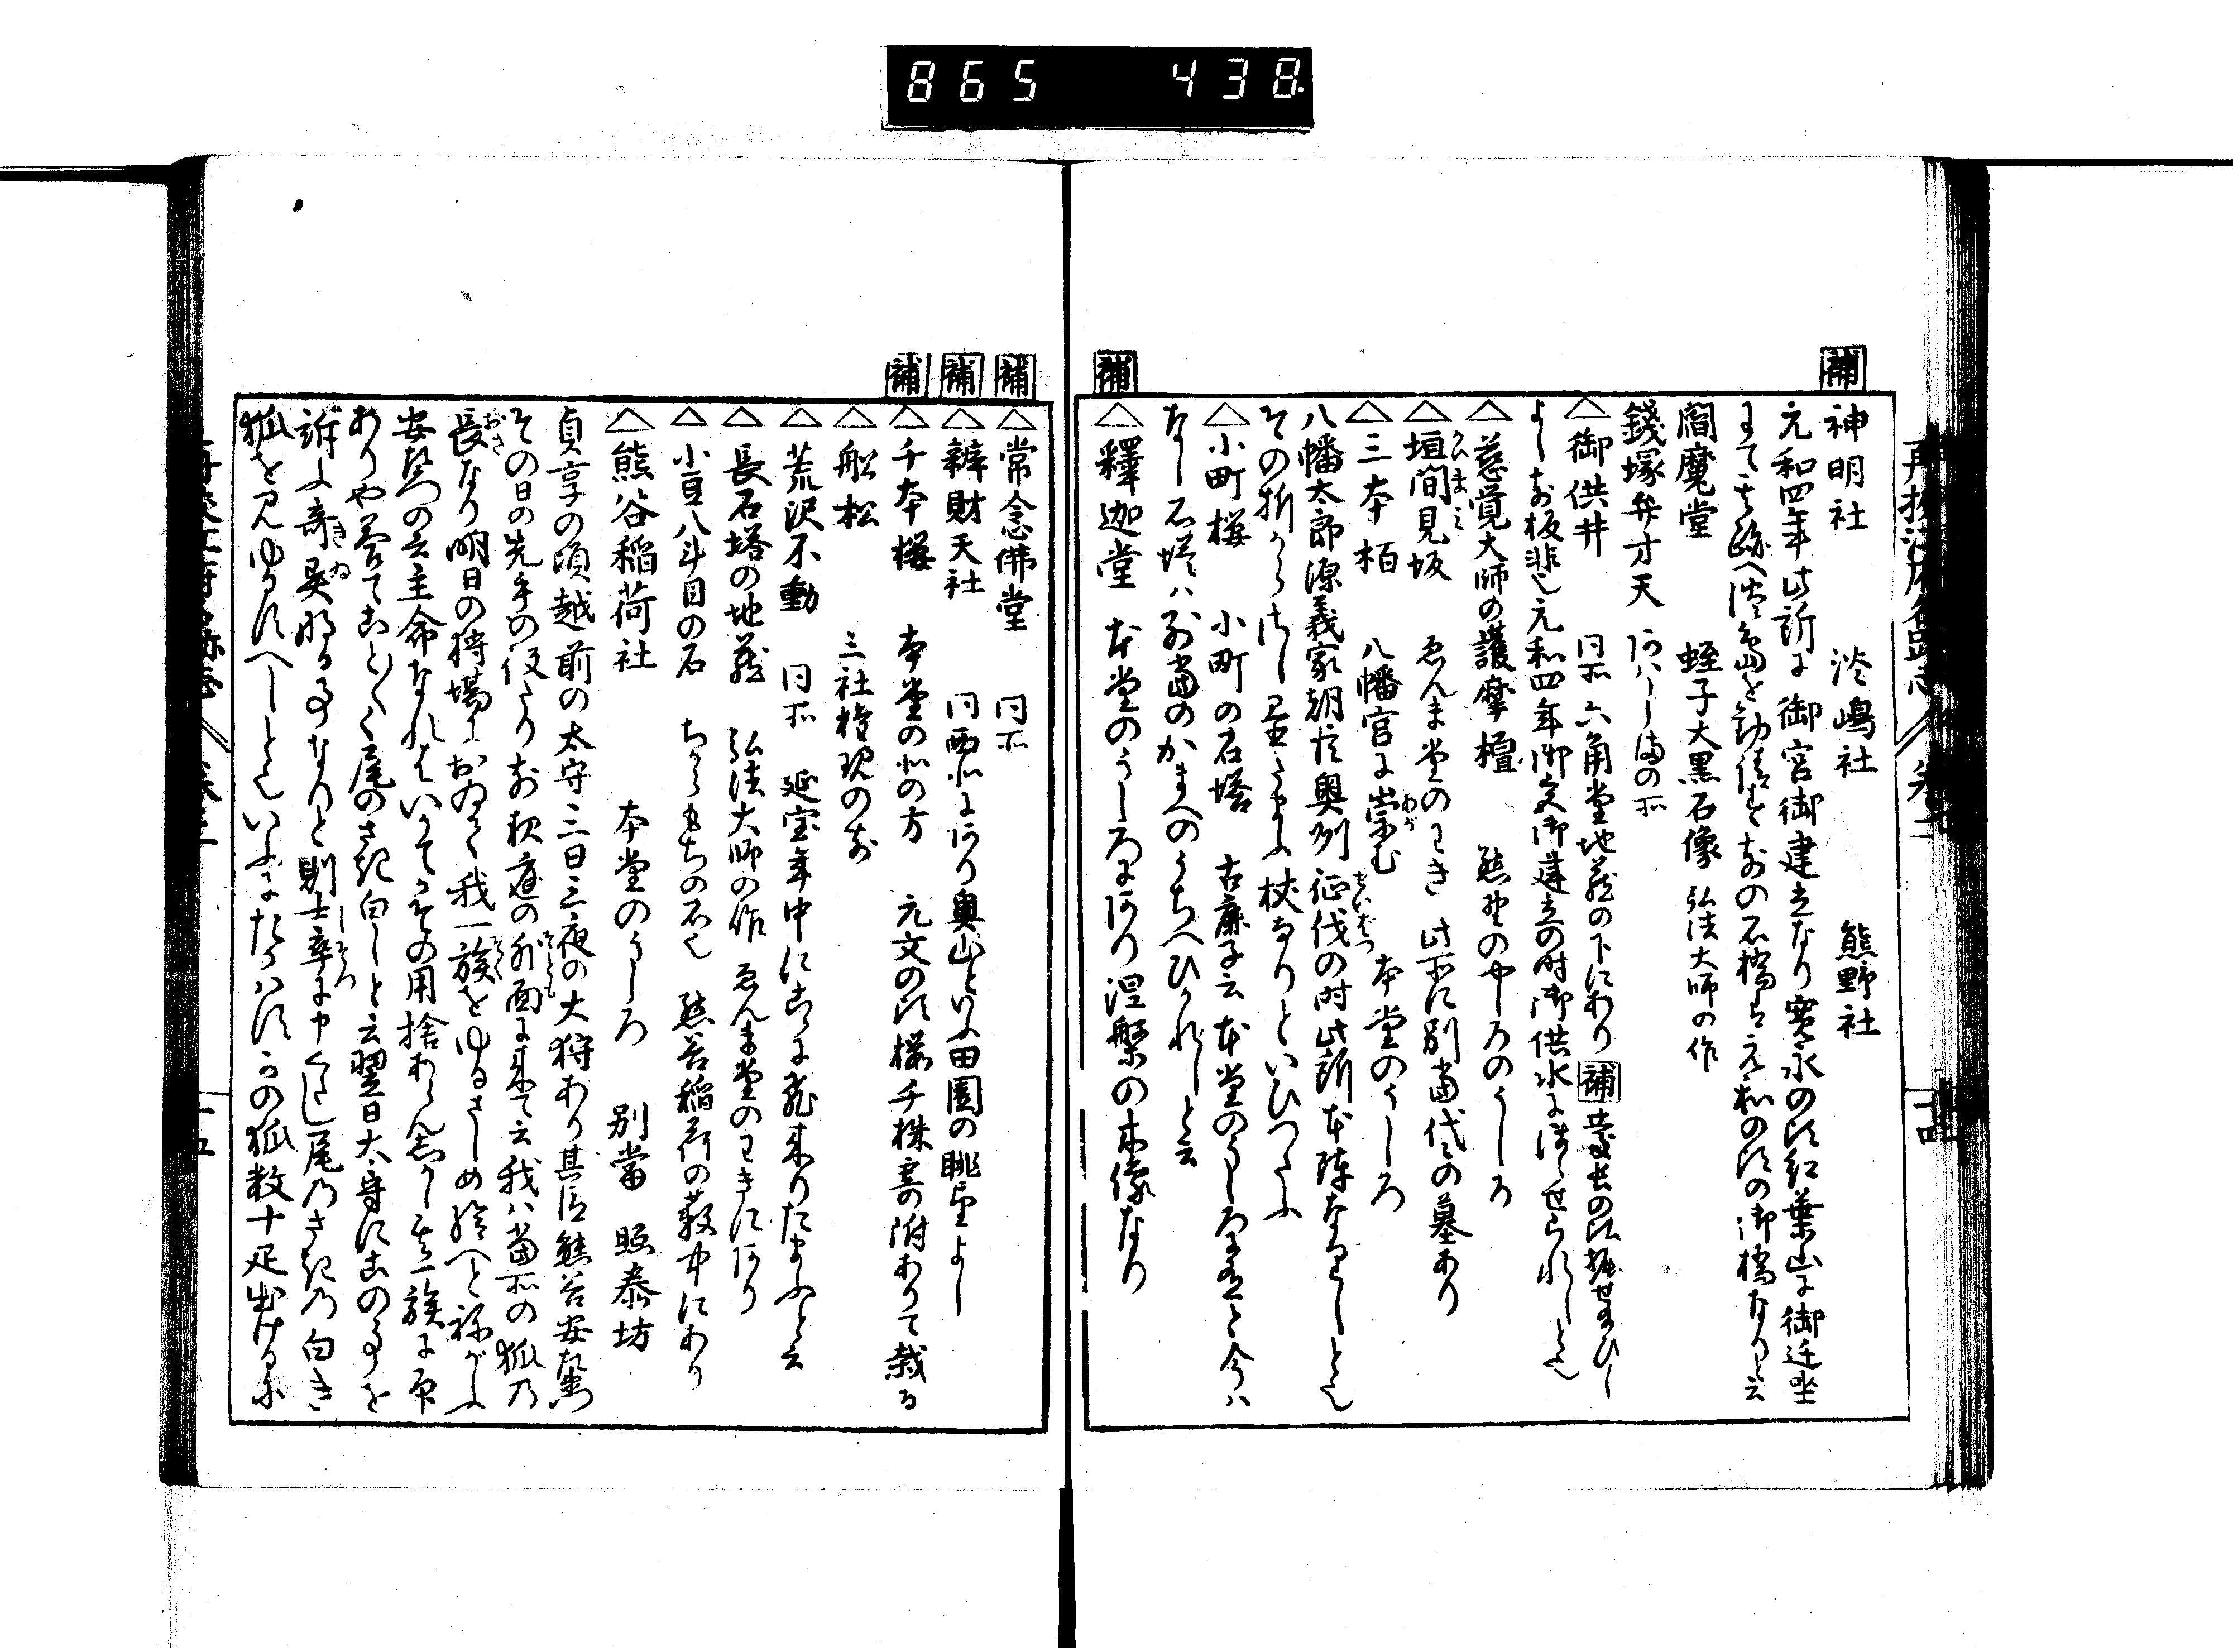 865 438
補
神明社 淡嶋社 熊野社
元和四年此所に御宮御建立なり寛永の比紅葉山に御迁坐
にて其跡へ淡嶋を勧請すまへの石橋ハ元和の比の御橋なりと云
閻魔堂 蛭子大黒石像 弘法大師の作
錢塚弁才天 同所
△御供井 同所六角堂地蔵の下にあり 補 慶長の比堀せ給ひし
よしお板非也元和四年御宮御建立の時御供水に汲せられしと也
△慈覚大師の護摩檀 熊野のやしろのうしろ
△垣間見坂 ゑんま堂のわき 此所に別当代々の墓あり
△三本栢 八幡宮に崇む 本堂のうしろ
八幡太郎源義家朝臣奥州征伐の時此所本陣なりしと也
その折からさし置たまふ杖なりといひつたふ
△小町桜 小町の石塔 古鹿子云本堂のうしろに有と今ハ
なし石塔ハ別當のかまへのうちへひかれしと云
補
△釋迦堂 本堂のうしろにあり涅槃の木像なり
補
△常念佛堂 同所
補
△辨財天社 同西北にあり奥山といふ田圃の眺望よし
補
△千本桜 本堂の北の方 元文の比櫻千株寄附ありて栽る
△舩松 三社権現のまへ
△荒沢不動 同所 延宝年中にこゝに飛来りたまふと云
△長石塔の地蔵 弘法大師の作 ゑんま堂のわきにあり
△小豆八斗目の石 ちからもちの石也 熊谷稲荷の藪中にあり
△熊谷稲荷社 本堂のうしろ 別當 照泰坊
貞享の頃越前の太守三日三夜の大狩あり其臣熊谷安左衛門
その日の先手の役たりお夜庭の外面に来て云我ハ當所の狐乃
長なり明日の狩場におゐて我一族をゆるさしめ給へと祢がふ
安左衛門の云主命なれはいかてそその用捨あらん然かし其一族に印
ありや答てことことく尾のさき白しと云翌日太守にこの事を
訴ふ奇異成る事なりと則士卒に申くたし尾乃さき乃白き
狐を见ゆるすへしと也いふにたかハす かの狐数十疋出けるに